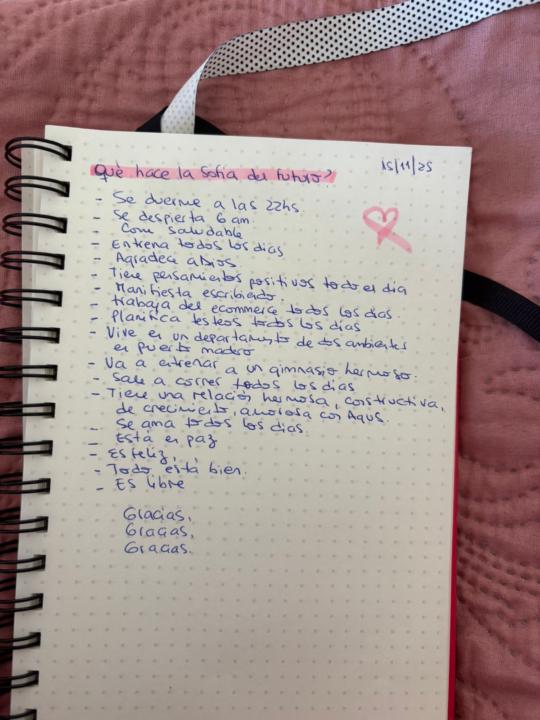 Qué hace la Sofia del futuro? 15/11/25
- Se duerme a las 22hs.
- Se despierta 6 am
- Com saludable
- Entrena todos los dias
- Agradece a Dios.
- Tiene pensamientos positivos todo el dia
- Manifiesta escribiendo.
- trabaja del ecommerce todos los dias.
- Planifica testeos todos los dias
- Vive en un departamento de dos ambientes
en puerto madero
- Va a entrenar a un gimnasio hermoso.
- Sale a correr todos los dias
- Tiene una relación hermosa, constructiva,
de crecimiento, amorosa con Agus.
- Se ama todos los dias.
- Está en paz
- Es feliz,
- Todo está bien.
- Es libre
Gracias,
Gracias.
Gracias.